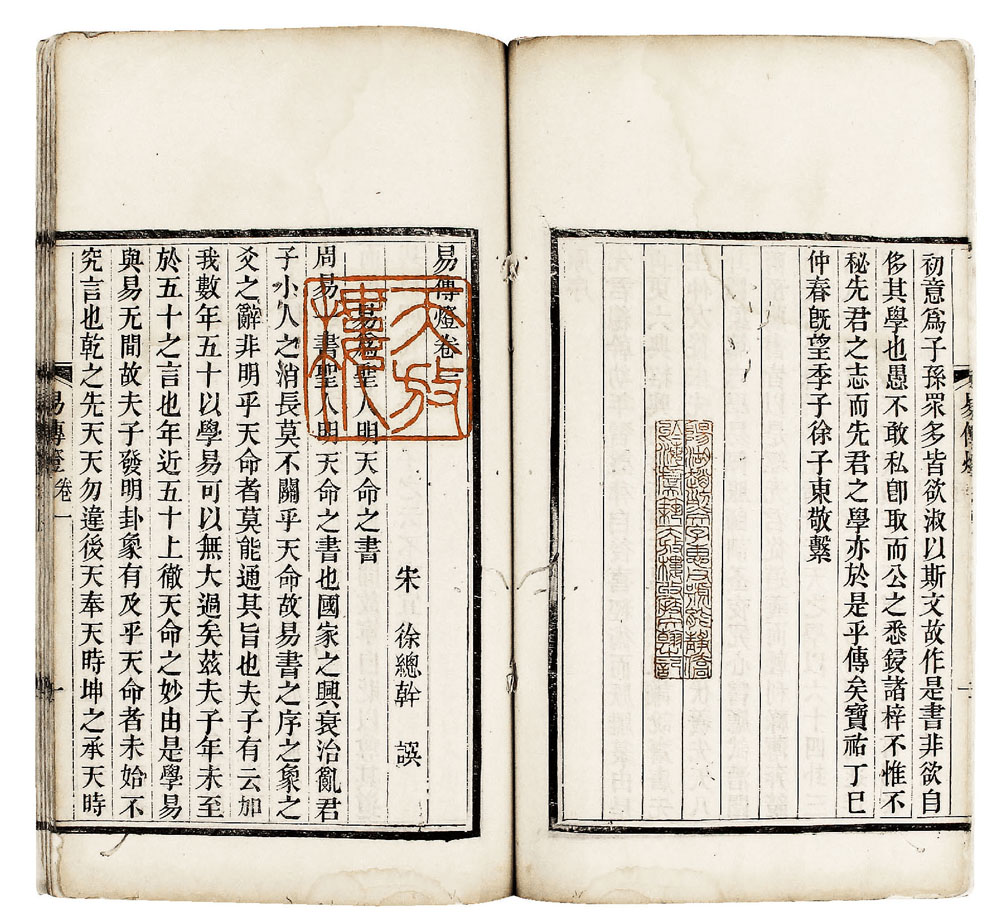 初意爲子孫眾多皆欲淑以斯文故作是書非欲自
侈其學也愚不敢私卽取而公之悉鋟諸梓不惟不
秘先君之志而先君之學亦於是乎傳矣寶祐丁巳
仲春旣望季子徐子東敬繫
陽湖趙烈文字惠甫號能靜僑
於海虞築天放樓收庋文翰之記
易傳燈卷一
天放樓
宋 徐總幹 譔
易爲聖人明天命之書
周易一書聖人明天命之書也國家之興衰治亂君
子小人之消長莫不關乎天命故易書之序之象之
爻之辭非明乎天命者莫能通其旨也夫子有云加
我數年五十以學易可以無大過矣茲夫子年未至
於五十之言也年近五十上徹天命之妙由是學易
與易无間故夫子發明卦象有及乎天命者未始不
究言也乾之先天天勿違後天奉天時坤之承天時
易傳燈 卷一 一